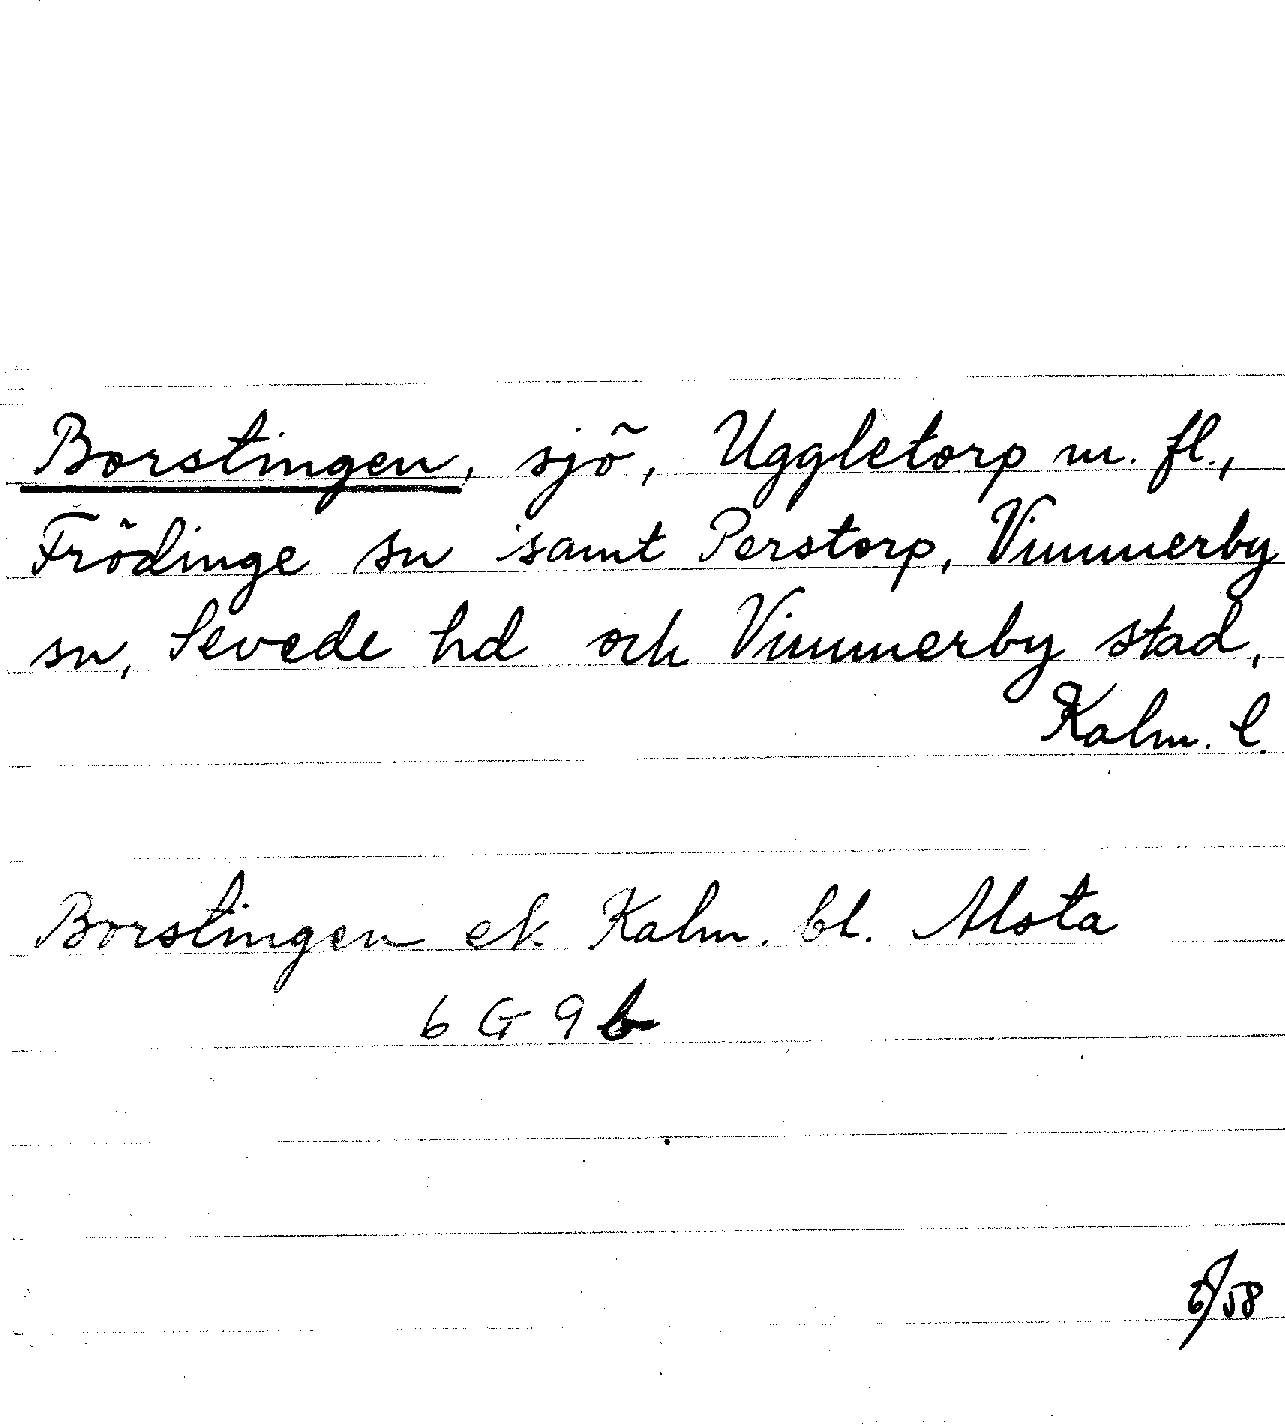 Borstingen, sjö, Uggletorp m. fl.,
Frödinge sn samt Perstorp, Vimmerby
sn, Sevede hd och Vimmerby stad,
Kalm. l.
Borstingen ek Kalm. bl. Alsta
6 G 9 b
6/58